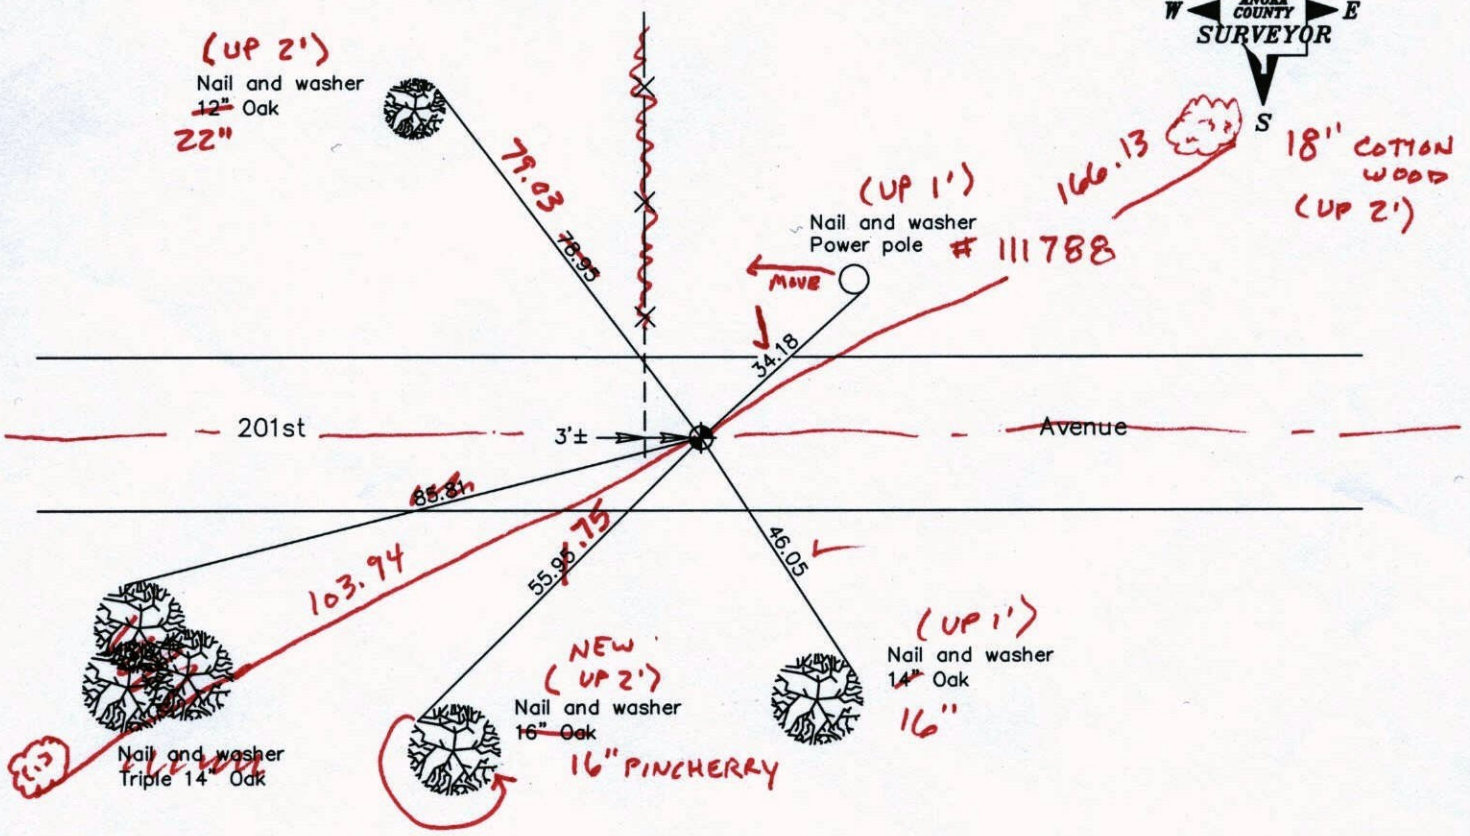 ANOKA
W COUNTY E
SURVEYOR
S
(UP 2')
Nail and washer
12" Oak
22"
79.03
78.95
(UP 1')
Nail and washer
Power pole # 111788
MOVE
34.18
166.13
18" COTTON
WOOD
(UP 2')
201st
3'±
Avenue
85.81
103.94
55.95 .75
46.05
Nail and washer
Triple 14" Oak
NEW
(UP 2')
Nail and washer
16" Oak
16" PINCHERRY
(UP 1')
Nail and washer
14" Oak
16"